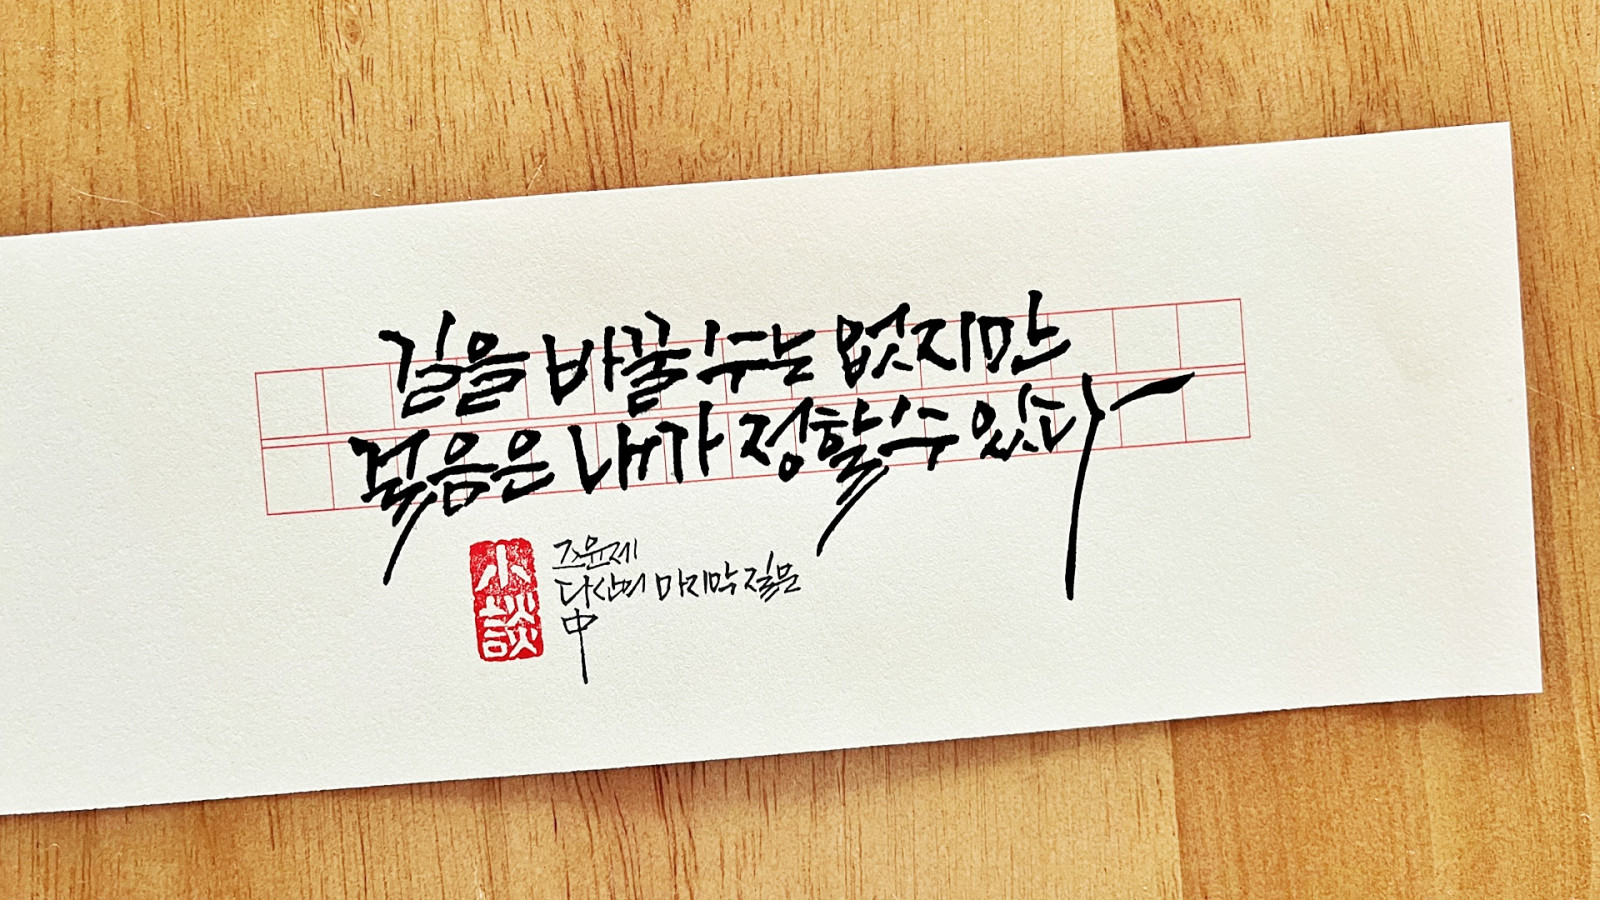 길을 바꿀 수는 없지만
걸음은 내가 정할 수 있다
小談
조윤제
다산의 마지막 질문
中